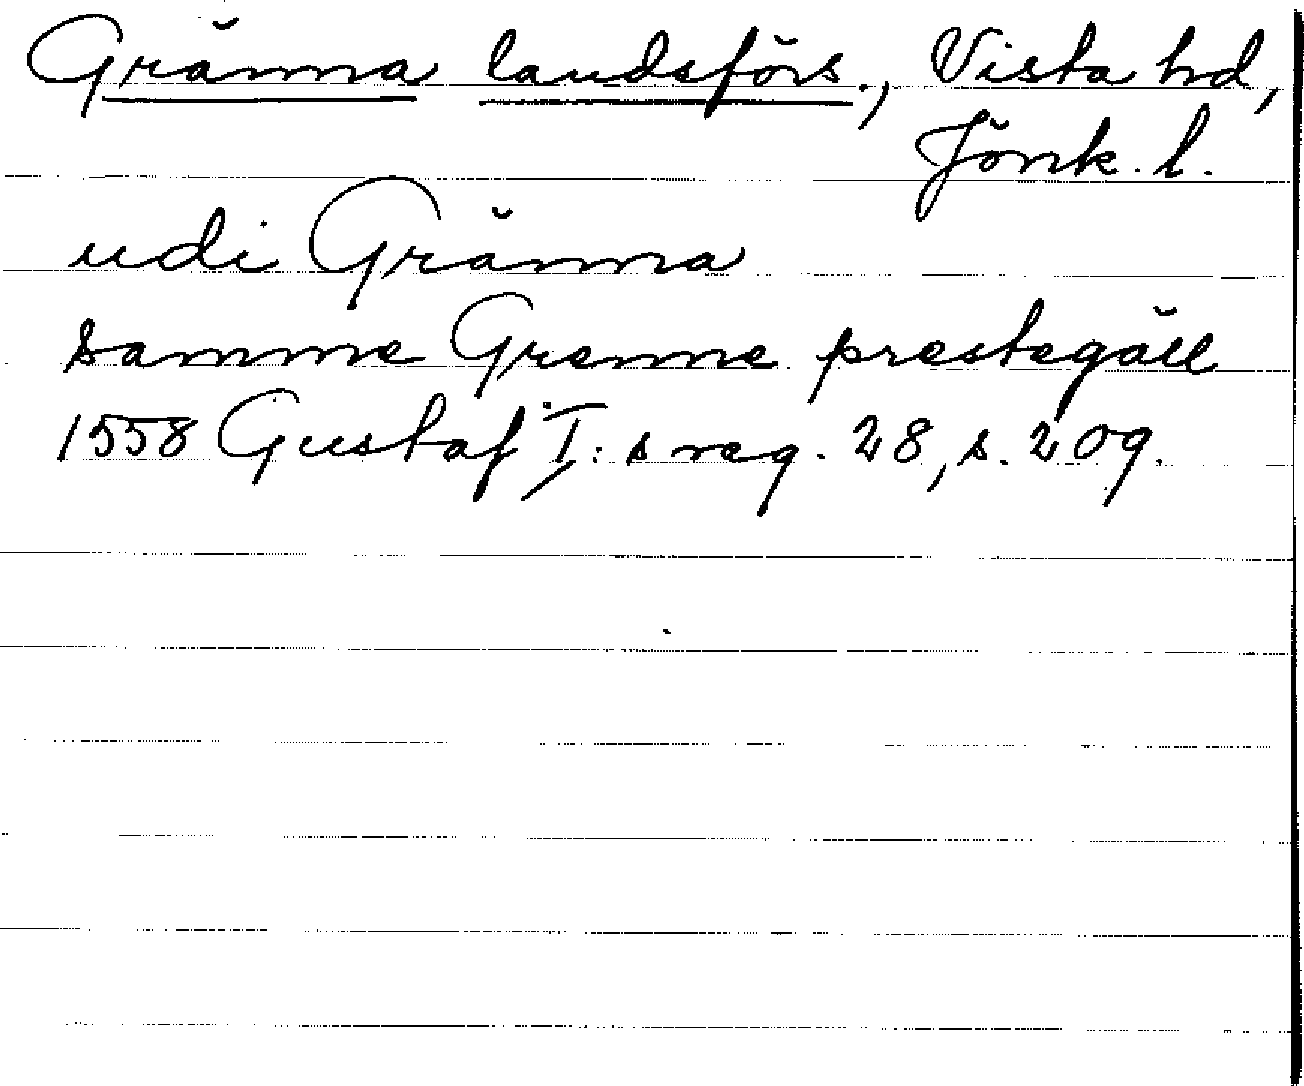 Gränna landsförs., Vista hd,
Jönk. l.
udi Gränna
samme Grenne prestegäll
1558 Gustaf I:s reg. 28, s. 209.